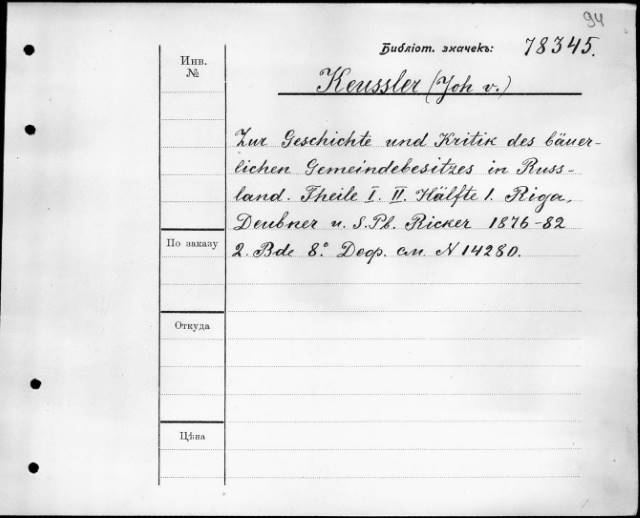 94
Библіот. значекъ: 78345.
Инв.
№
Keussler (Joh v.)
Zur Geschichte und Kritik des bäuer-
lichen Gemeindebesitzes in Russ-
land. Theile I. II. Hälfte 1. Riga,
Deubner u. S.Pb. Ricker 1876-82
По заказу
2. Bde 8.° Деф. см. N 14280.
Откуда
Цѣна